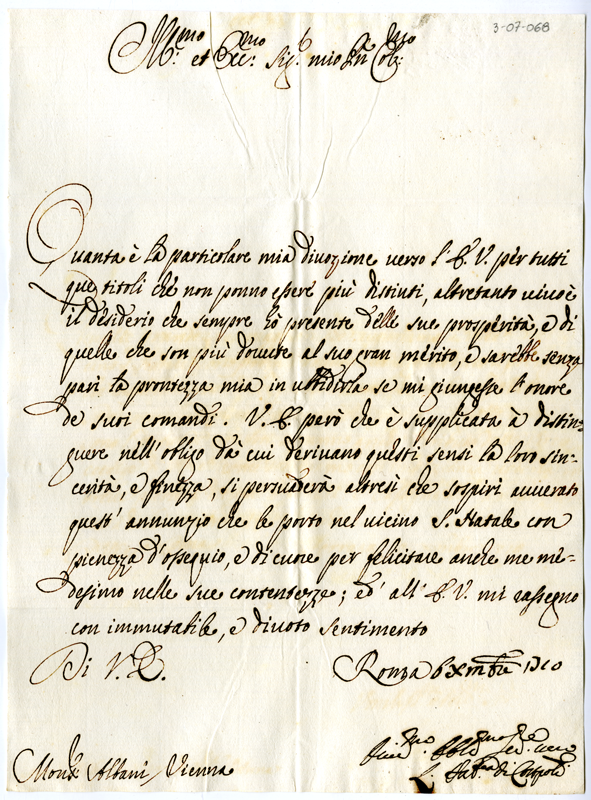 3-07-068
Ill.mo et Ecc.mo Sig.r mio P̃ron Col.mo
Quanta è la particolare mia divozione verso l'E.V. per tutti
que titoli che non ponno essere più distinti, altretanto vivo è
il desiderio che sempre hò presente delle sue prosperità, e di
quelle che son più dovute al suo gran mérito, e sarebbe senza
pari la prontezza mia in ubbidirla se mi giungesse l'onore
de suoi comandi. V.E. però che è supplicata à distin=
guere nell'obligo dà cui derivano questi sensi la loro sin=
cerità, e finezza, si persuaderà altresì che sospiri avverato
quest' annunzio che le porto nel vicino S. Natale con
pienezza d'ossequio, e di cuore per felicitare anche me me=
desimo nelle sue contentezze; ed' all' E.V. mi rassegno
con immutabile, e divoto sentimento
Di V.E. Roma 6 Xmbre 1710
Mons.r Albani Vienna